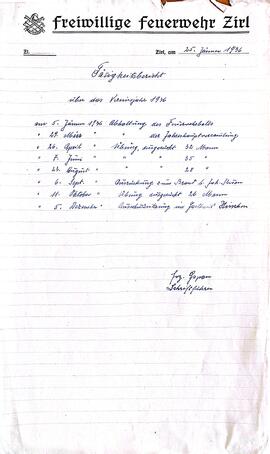 freiwillige Feuerwehr Zirl
Zirl, am 25. Jänner 1936
Tätigkeitsbericht
über das Vereinsjahr 1936
am 5. Jänner 1936 Abhaltung des Feuerwehrballs
" 29. März " " der Jahreshauptversammlung
" 26. April " Übung, ausgerückt 32 Mann
" 7. Juni " " " 35 "
" 23. August " " " 28 "
" 6. Sept. " Ausrückung zum Brand b. Joh.
" 11. Oktober " Übung ausgerückt 26 Mann
" 5. Dezember " im Gasthaus Hirschen
Schriftführer